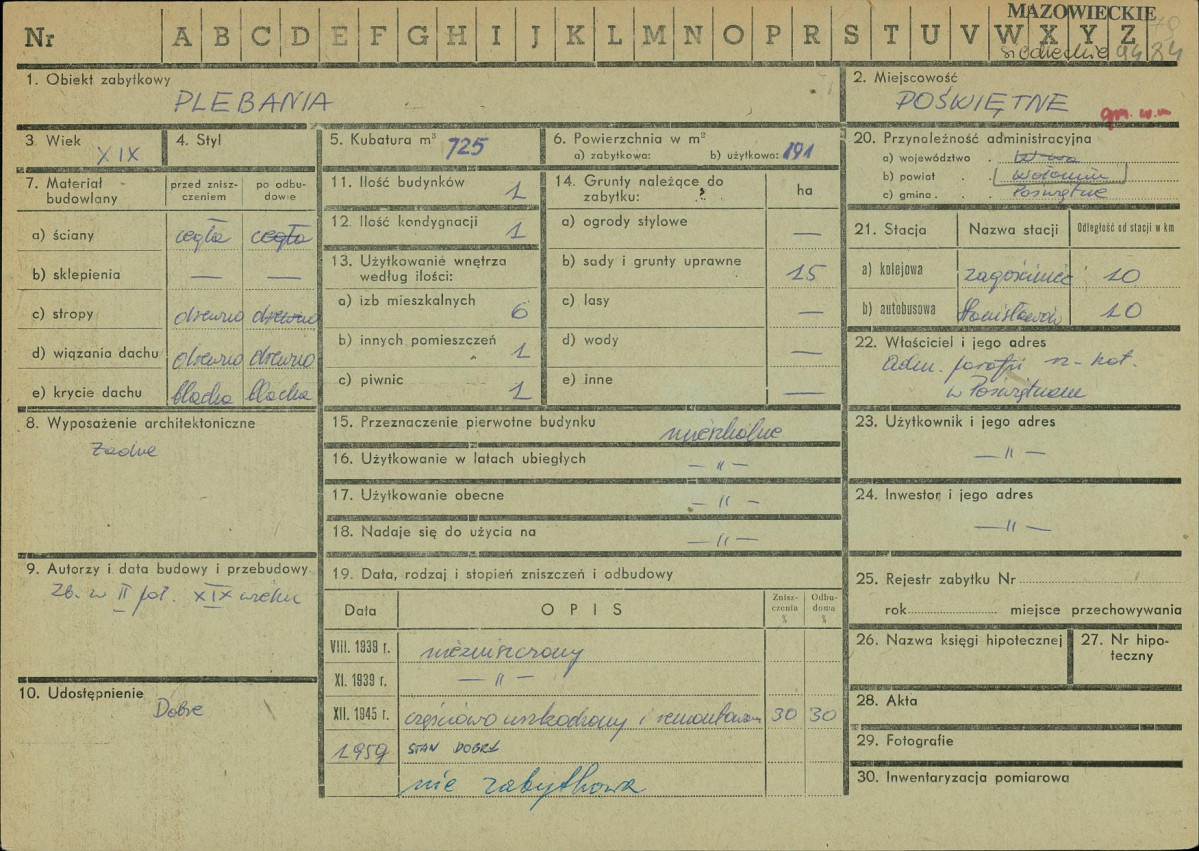 MAZOWIECKIE
Nr A B C D E F G H I J K L M N O P R S T U V W X Y Z
siedleckie 94/84
1. Obiekt zabytkowy
PLEBANIA
2. Miejscowość
POŚWIĘTNE
gm. w.m
3. Wiek
XIX
4. Styl
5. Kubatura m³ 725
6. Powierzchnia w m²
a) zabytkowa: b) użytkowa: 191
20. Przynależność administracyjna
a) województwo . W-wa
b) powiat . . Wołomin
c) gmina . . Poświętne
7. Materiał budowlany
przed zniszczeniem
po odbudowie
a) ściany cegła cegła
b) sklepienia — —
c) stropy drewno drewno
d) wiązania dachu drewno drewno
e) krycie dachu blacha blacha
11. Ilość budynków 1
12. Ilość kondygnacji 1
13. Użytkowanie wnętrza
według ilości:
a) izb mieszkalnych 6
b) innych pomieszczeń 1
c) piwnic 1
14. Grunty należące do
zabytku:
ha
a) ogrody stylowe —
b) sady i grunty uprawne 15
c) lasy —
d) wody —
e) inne —
21. Stacja Nazwa stacji Odległość od stacji w km
a) kolejowa Zagościniec 10
b) autobusowa Stanisławów 10
22. Właściciel i jego adres
Adm. parafii rz-kat.
w Poświętnem
8. Wyposażenie architektoniczne
żadne
15. Przeznaczenie pierwotne budynku mieszkalne
16. Użytkowanie w latach ubiegłych — " —
17. Użytkowanie obecne — " —
18. Nadaje się do użycia na — " —
23. Użytkownik i jego adres
— " —
24. Inwestor i jego adres
— " —
9. Autorzy i data budowy i przebudowy
Zb. w II poł. XIX wieku
10. Udostępnienie
Dobre
19. Data, rodzaj i stopień zniszczeń i odbudowy
Data OPIS Zniszczenia % Odbudowa %
VIII. 1939 r. niezniszczony
XI. 1939 r. — " —
XII. 1945 r. częściowo uszkodzony i remontowany 30 30
1959 STAN DOBRY
nie zabytkowa
25. Rejestr zabytku Nr
rok miejsce przechowywania
26. Nazwa księgi hipotecznej
27. Nr hipoteczny
28. Akta
29. Fotografie
30. Inwentaryzacja pomiarowa